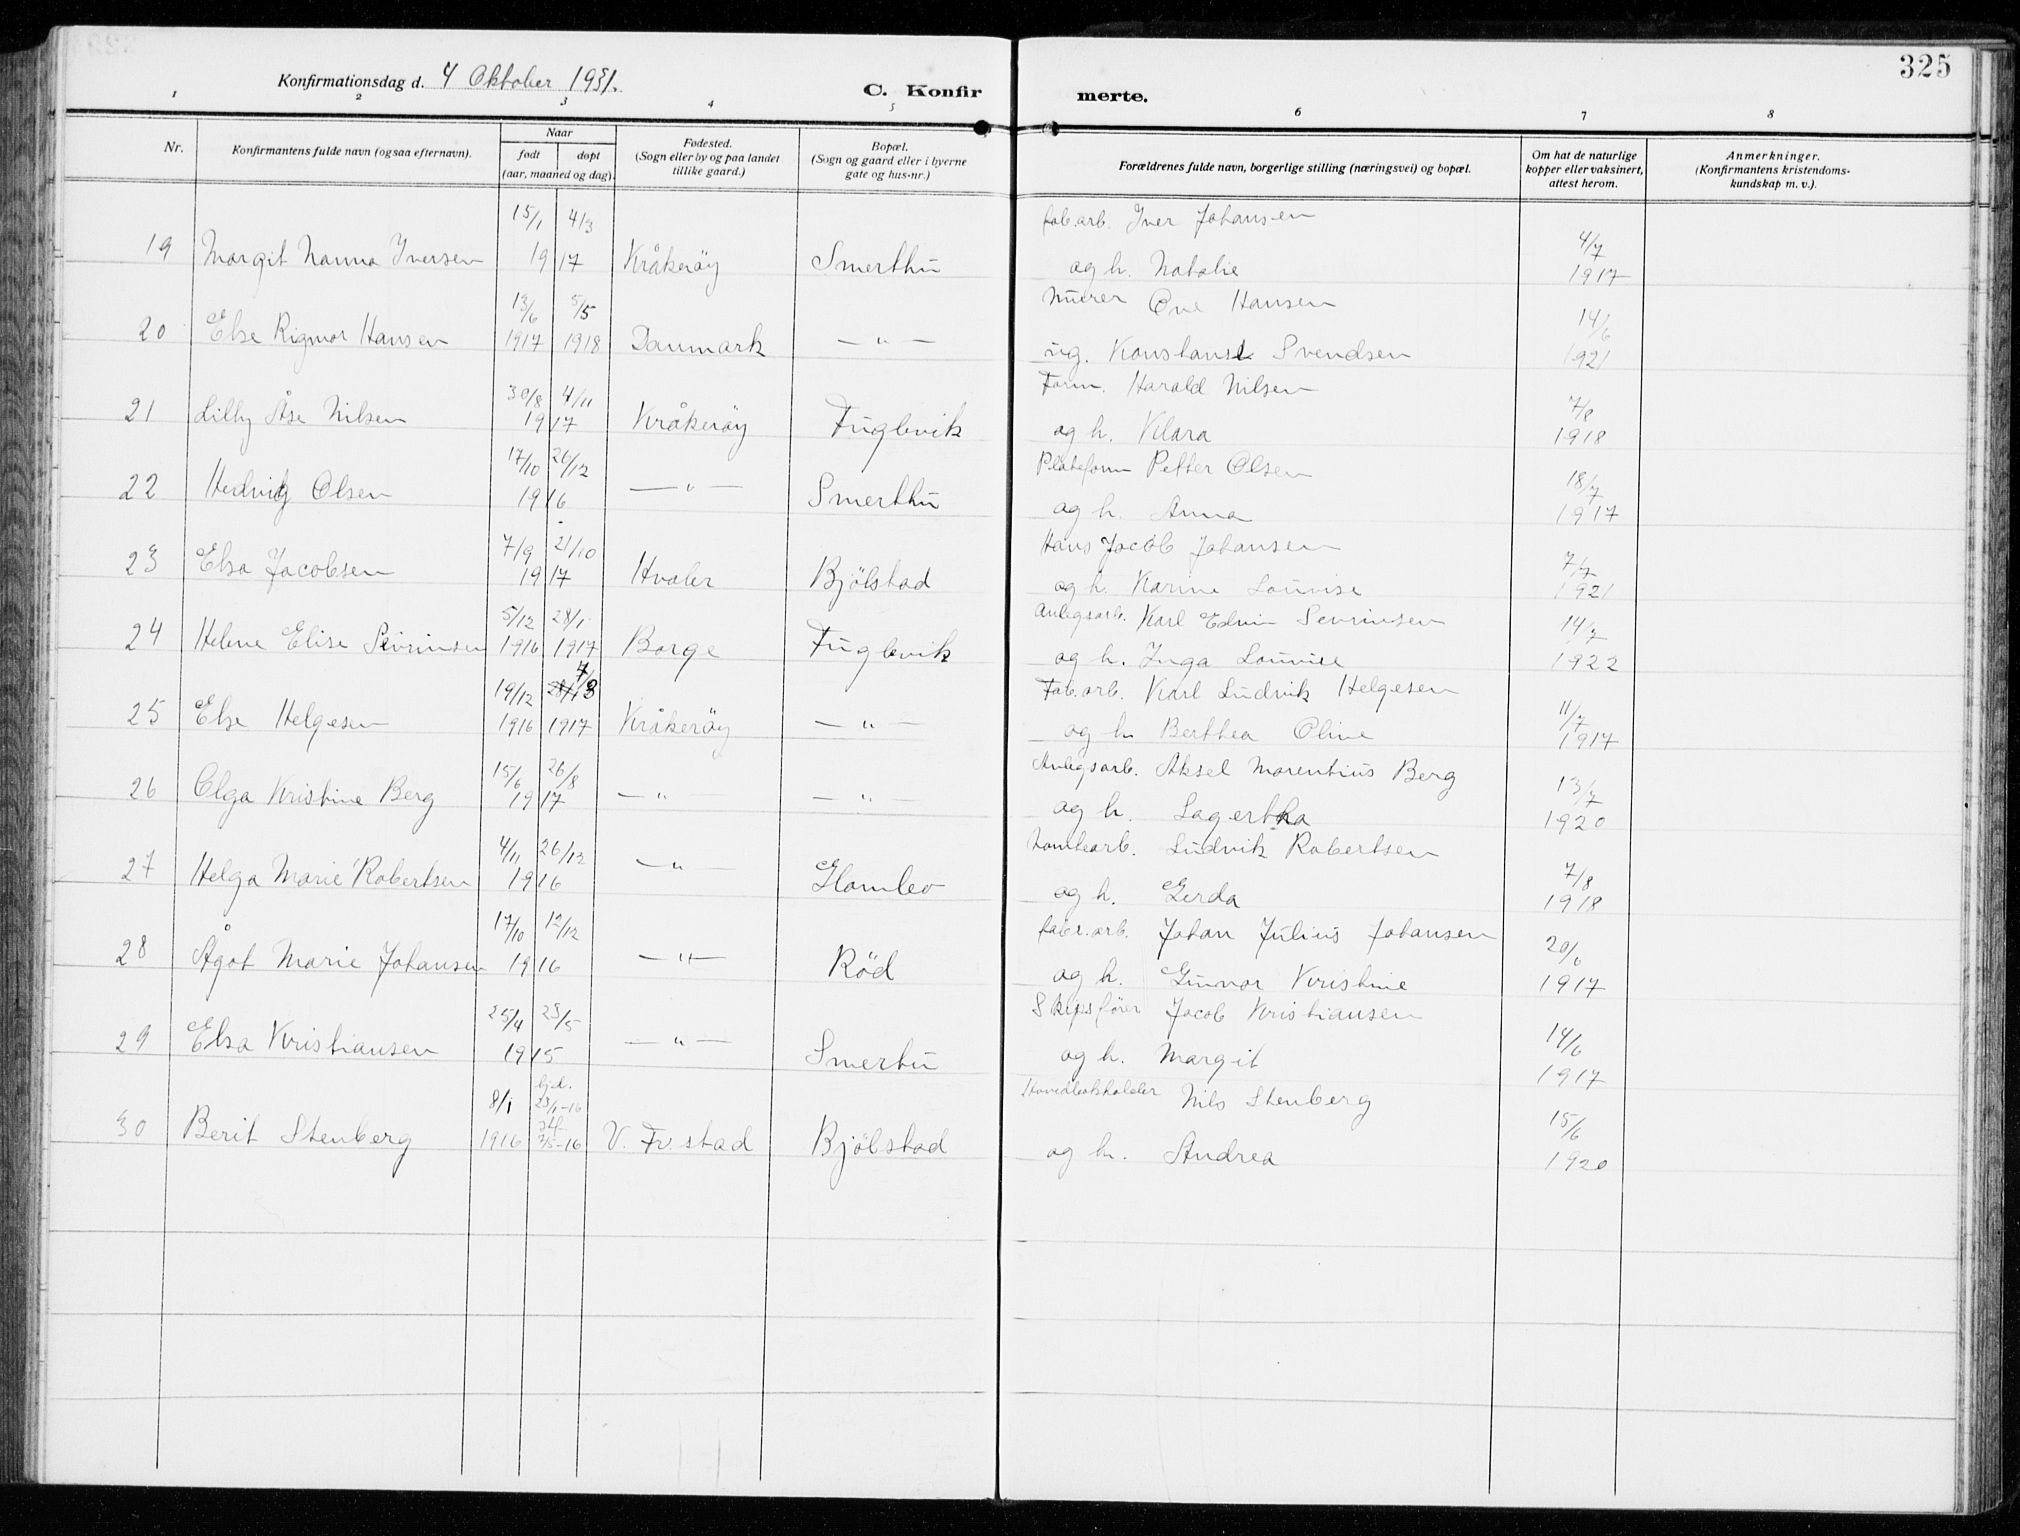 325
Konfirmationsdag d. 4 Oktober 1931.
C. Konfir merte.
1 2 3 4 5 6 7 8
Nr.
Konfirmantens fulde navn (ogsaa efternavn).
Naar
født døpt
(aar, maaned og dag).
Fødested.
(Sogn eller by og paa landet
tillike gaard.)
Bopæl.
(Sogn og gaard eller i byerne
gate og hus-nr.)
Forældrenes fulde navn, borgerlige stilling (næringsvei) og bopæl.
Om hat de naturlige
kopper eller vaksinert,
attest herom.
Anmerkninger.
(Konfirmantens kristendoms-
kundskap m. v.).
15/1 4/3 fab.arb. Iver Johansen
19 Margit Nanna Iversen 19 17 Kråkeröy Smerthu og h. Natalie 4/7 1917
13/6 5/5 Murer Ove Hansen
20 Else Rigmor Hansen 1917 1918 Danmark — " — ug. Konstanse Svendsen 14/6 1921
30/8 4/11 Form. Harald Nilsen
21 Lilly Åse Nilsen 19 17 Kråkeröy Fuglevik og h. Klara 7/8 1918
17/10 26/12 Plateform Petter Olsen
22 Hedvig Olsen 19 16 — " — Smerthu og h. Anna 18/7 1917
7/9 21/10 Hans Jacob Johansen
23 Elsa Jacobsen 19 17 Hvaler Bjölstad og h. Karine Louvise 7/7 1921
5/12 28/1 Anlegsarb. Karl Edvin Sevrinsen
24 Helene Elise Sevrinsen 1916 1917 Borge Fuglevik og h. Inga Louvise 14/7 1922
19/12 4/3 Fab.arb. Karl Ludvik Helgesen
25 Else Helgesen 1916 1917 Kråkeröy — " — og h. Berthea Oline 11/7 1917
15/6 26/8 Anlegsarb. Aksel Marentius Berg
26 Olga Kristine Berg 19 17 — " — — " — og h. Lagertha 13/7 1920
4/11 26/12 Tomtearb. Ludvik Robertsen
27 Helga Marie Robertsen 19 16 — " — Glomlev og h. Gerda 7/8 1918
17/10 12/12 fabr.arb. Johan Julius Johansen
28 Ågot Marie Johansen 19 16 — " — Röd og h. Gunvor Kristine 20/6 1917
25/4 23/5 Skipsförer Jacob Kristiansen
29 Elsa Kristiansen 19 15 — " — Smertu og h. Margit 14/6 1917
8/1 hjd. 23/1-16 Hovedbokholder Nils Stenberg
30 Berit Stenberg 1916 stf. 7/5-16 V. Fr.stad Bjölstad og h. Andrea 15/6 1920